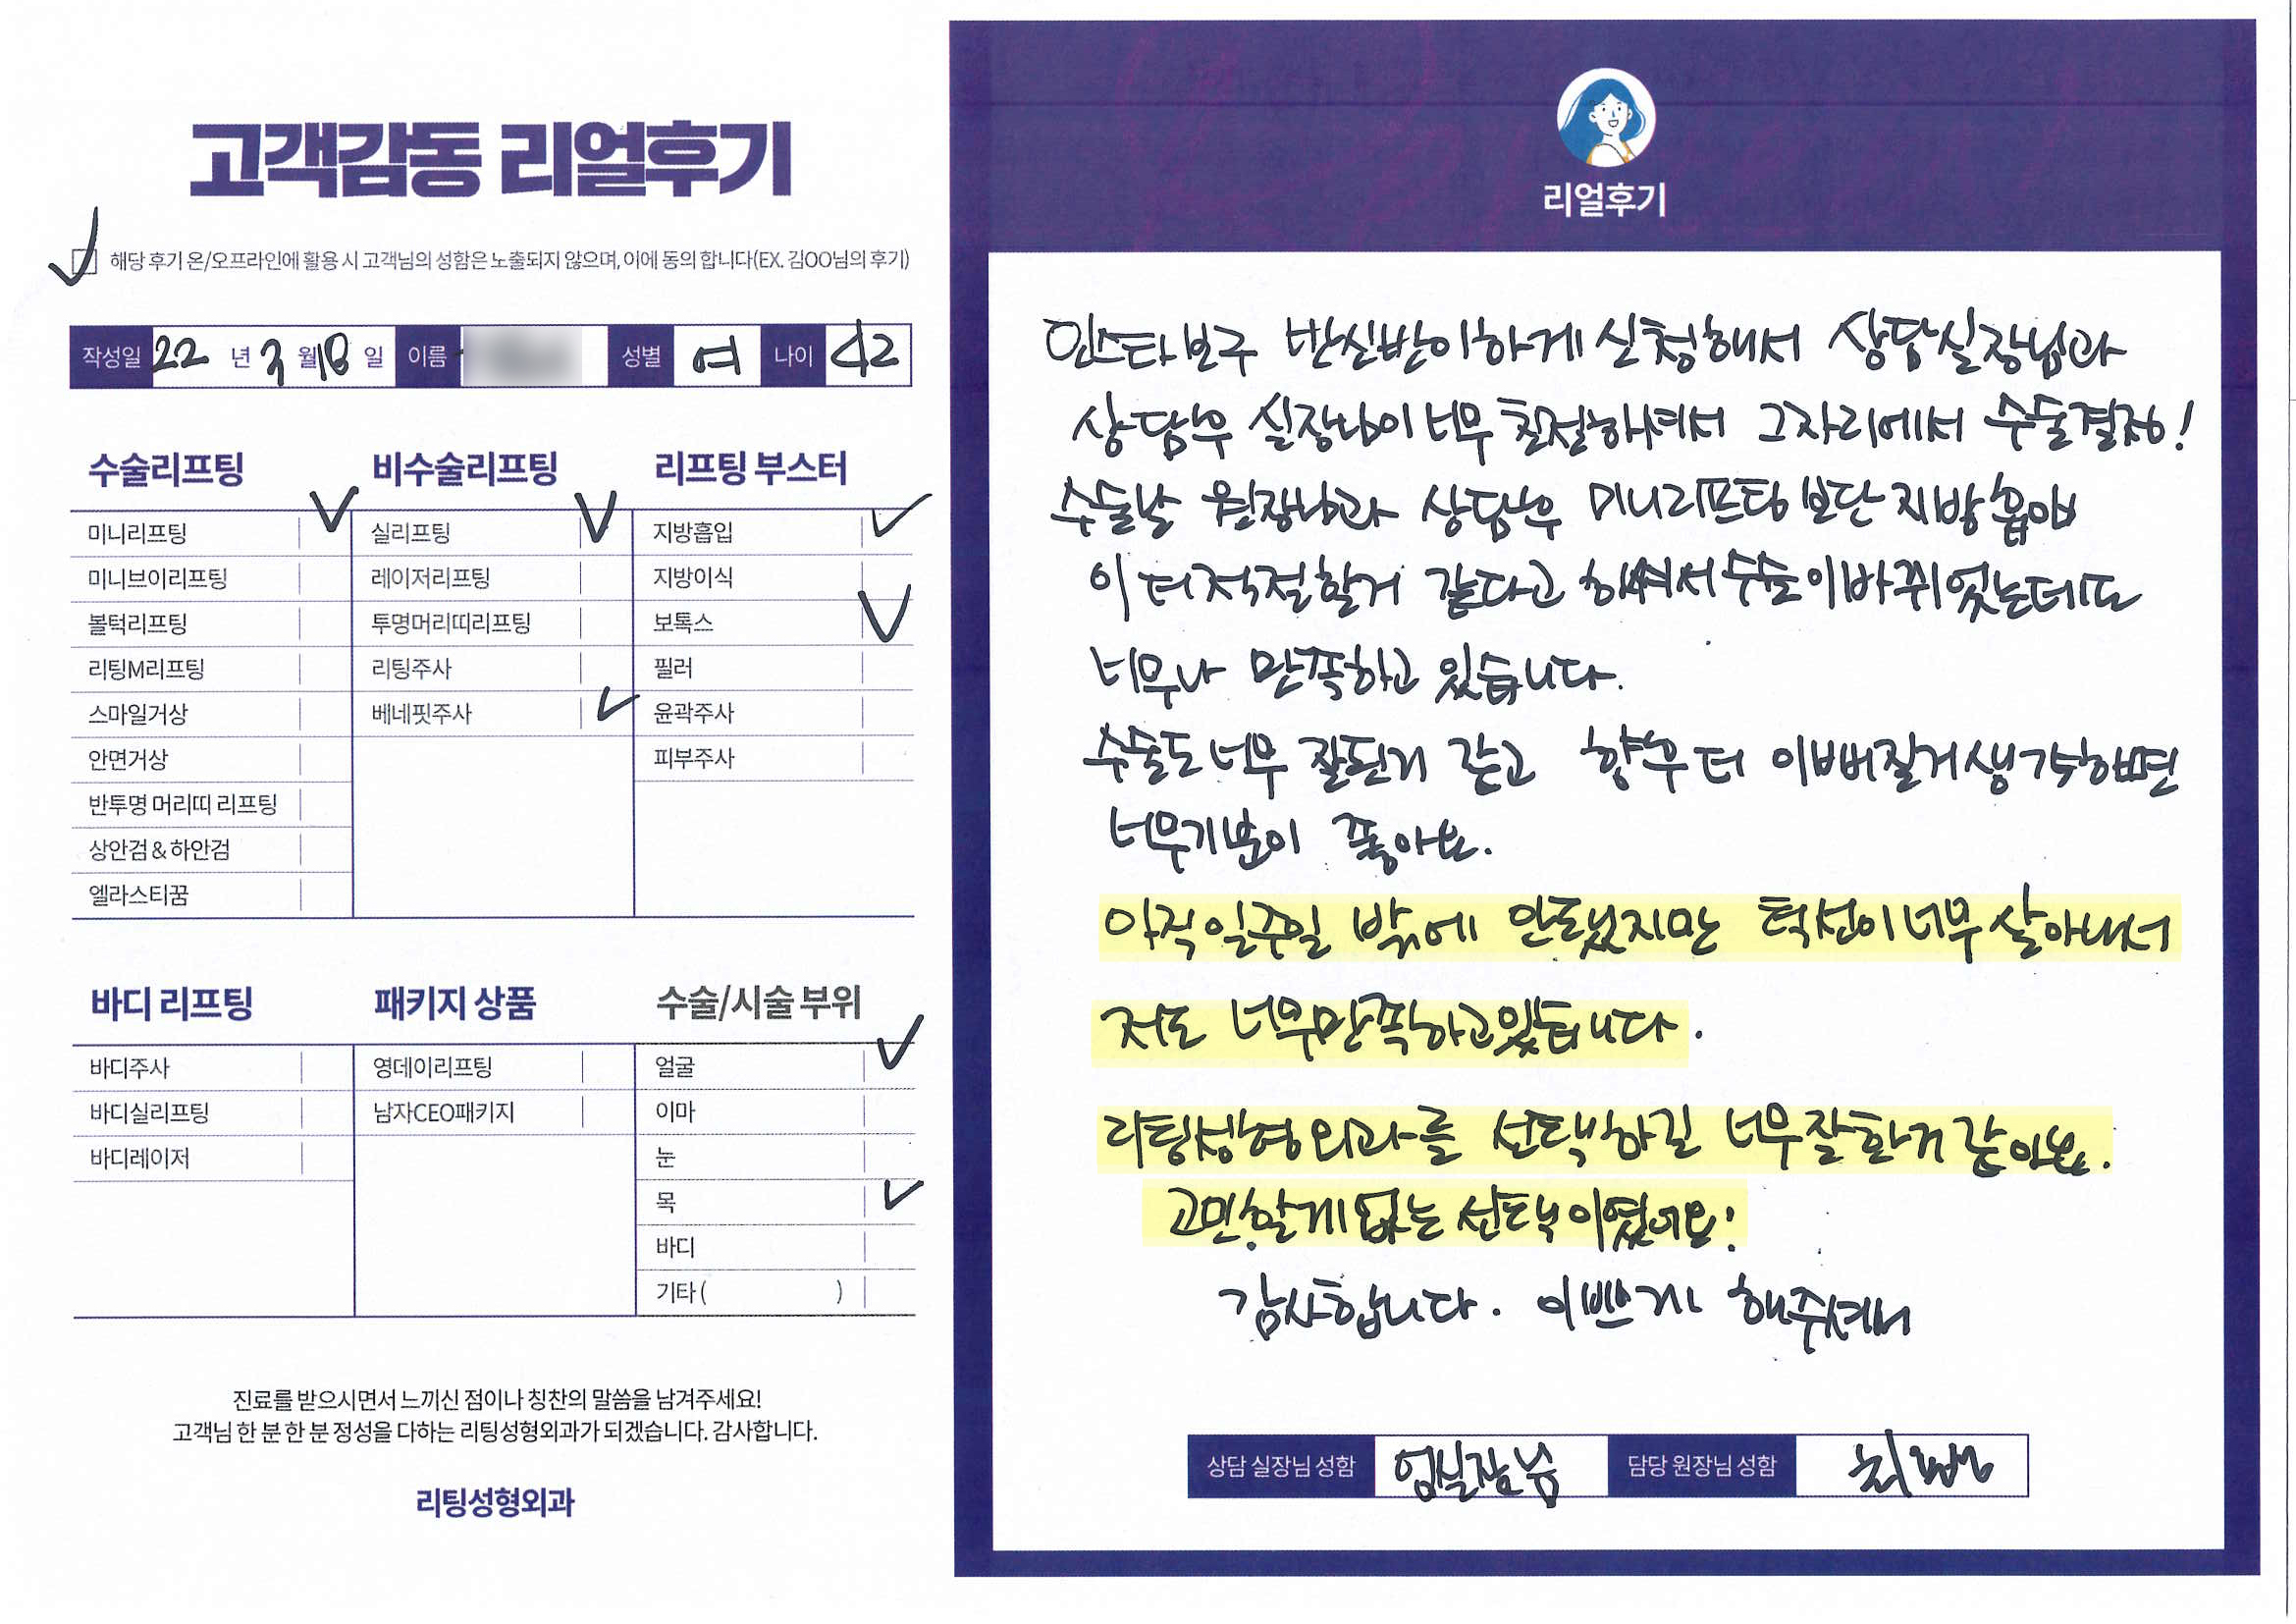 고객감동 리얼후기
해당 후기 온/오프라인에 활용 시 고객님의 성함은 노출되지 않으며, 이에 동의 합니다(EX. 김OO님의 후기)
작성일 22 년 3 월 18 일 이름 성별 여 나이 42
수술리프팅
미니리프팅
미니브이리프팅
볼턱리프팅
리팅M리프팅
스마일거상
안면거상
반투명 머리띠 리프팅
상안검 & 하안검
엘라스티꿈
비수술리프팅
실리프팅
레이저리프팅
투명머리띠리프팅
리팅주사
베네핏주사
리프팅 부스터
지방흡입
지방이식
보톡스
필러
윤곽주사
피부주사
바디 리프팅
바디주사
바디실리프팅
바디레이저
패키지 상품
영데이리프팅
남자CEO패키지
수술/시술 부위
얼굴
이마
눈
목
바디
기타 ( )
진료를 받으시면서 느끼신 점이나 칭찬의 말씀을 남겨주세요!
고객님 한 분 한 분 정성을 다하는 리팅성형외과가 되겠습니다. 감사합니다.
리팅성형외과
리얼후기
인스타보구 반신반이하게 신청해서 상담실장님과
상담후 실장님이 너무 친절하셔서 그자리에서 수술결정!
수술날 원장님과 상담후 미니리프팅 보단 지방흡입
이 더 적절할거 같다고 하셔서 수술이 바뀌었는데도
너무나 만족하고 있습니다.
수술도 너무 잘된거 같고 향후 더 이뻐질거 생각하면
너무 기분이 좋아요.
아직 일주일 밖에 안됐지만 턱선이 너무 살아나서
저도 너무 만족하고 있습니다.
리팅성형외과를 선택하길 너무 잘한거 같아요.
고민할게 없는 선택이였어요!
감사합니다. 이쁘게 해주셔서
상담 실장님 성함 엄실장님 담당 원장님 성함